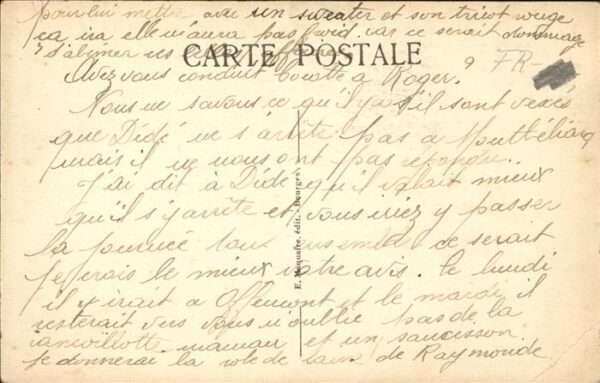 pour lui mettre avec un sweater et son tricot rouge
ça ira elle n'aura pas froid. car ce serait dommage
d'abîmer
CARTE POSTALE
9 FR-
Avez vous conduit Cocotte à Roger.
Nous ne savons ce qu'il y a s'il sont vexés
que Dédé ne s'arrête pas a Montbéliard
mais il ne nous ont pas répondu.
J'ai dit à Dédé qu'il valait mieux
qu'il s'y arrête et vous iriez y passer
la journée tous ensemble ce serait
je crois le mieux votre avis. le lundi
il y irait a Offemont et le mardi il
resterait vers vous n'oublie pas de la
maman et un saucisson.
je donnerai la robe de de Raymonde
édit. - Bourges